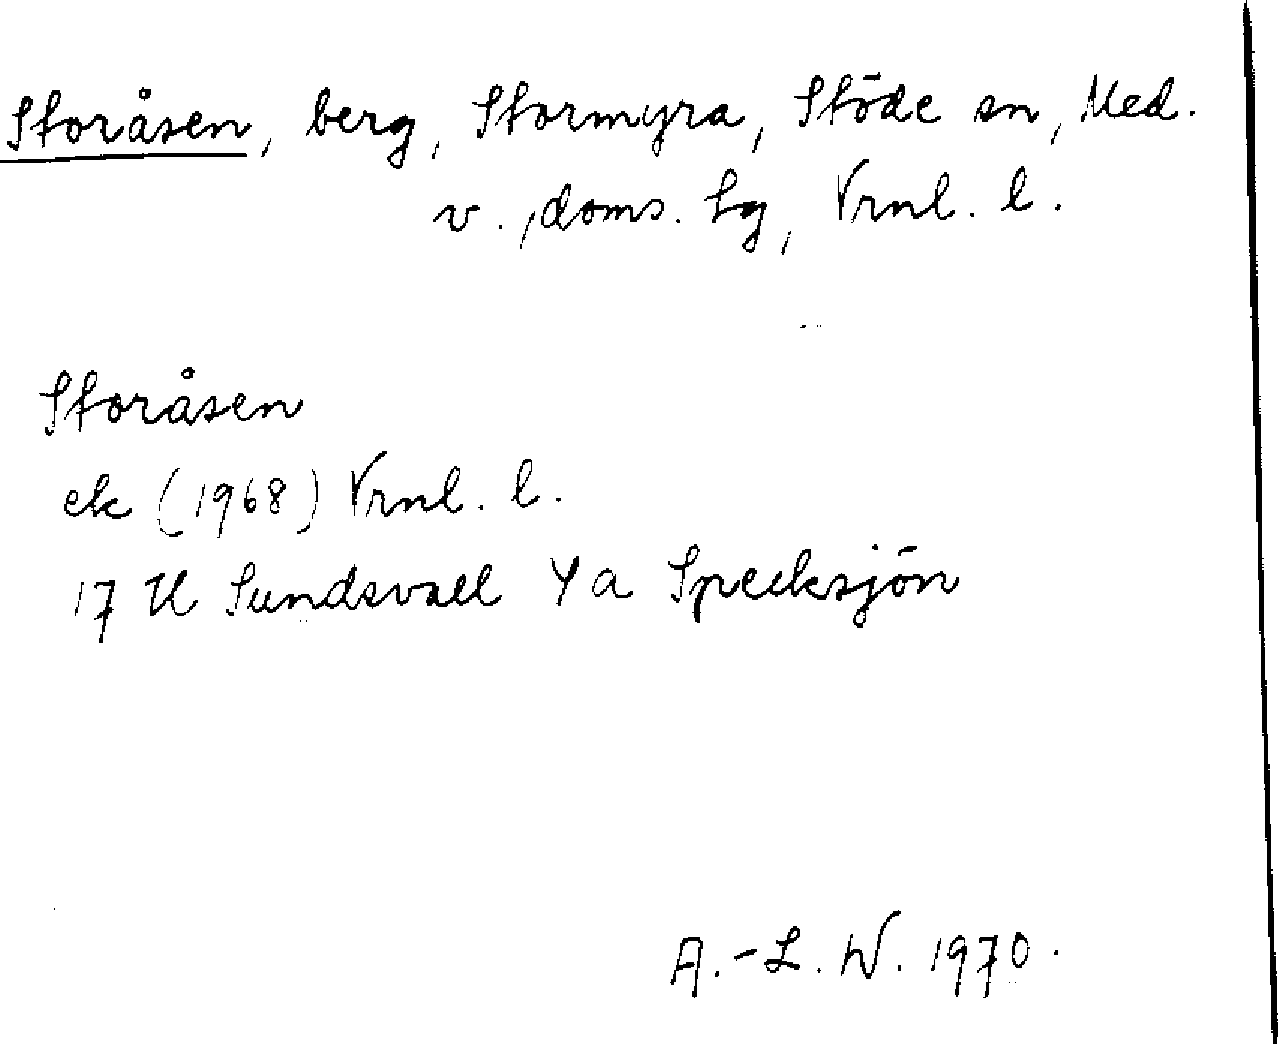 Storåsen, berg, Stormyra, Stöde sn, Med.
v., doms. Lg, Vrnl. l.
Storåsen
ek (1968) Vrnl. l.
17 H Sundsvall 4 a Specksjön
A.-L. W. 1970.